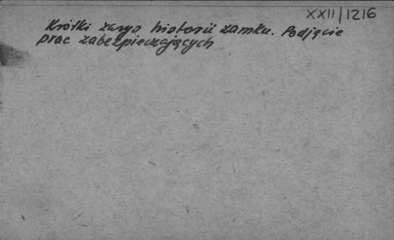 XXII/1216
Krótki zarys historii zamku. Podjęcie
prac zabezpieczających